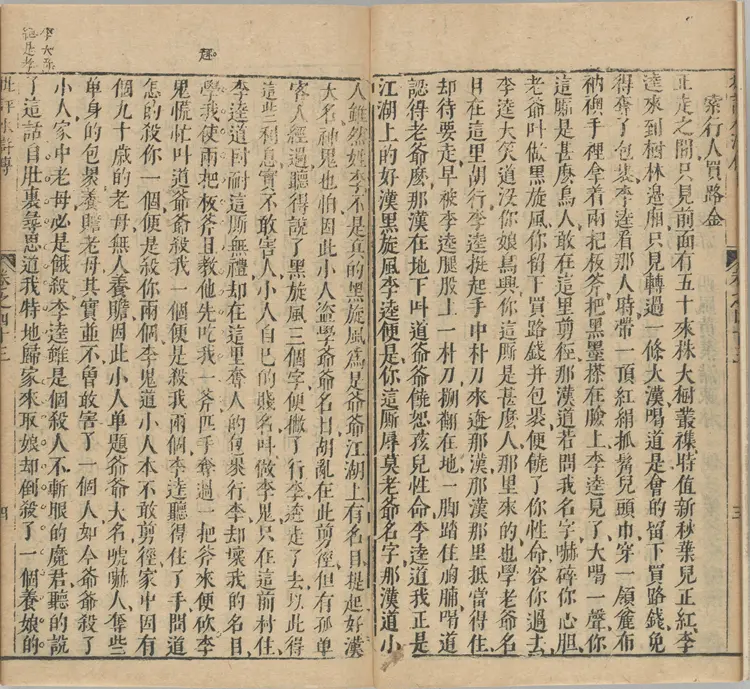 索行人買路金
正走之間只見前面有五十來株大樹叢襍時值新秋葉兒正紅李
逵來到樹林邊廂只見轉過一條大漢喝道是會的留下買路錢免
得奪了包裹李逵看那人時帶一頂紅絹抓髩兒頭巾穿一領麄布
衲襖手裡拿着兩把板斧把黑墨搽在臉上李逵見了大喝一聲你
這廝是甚麽鳥人敢在這里剪徑那漢道若問我名字嚇碎你心胆
老爺叫做黑旋風你留下買路錢并包裹便饒了你性命容你過去
李逵大笑道沒你娘鳥興你這廝是甚麽人那里來的也學老爺名
目在這里胡行李逵挺起手中朴刀來逩那漢那漢那里抵當得住
却待要走早被李逵腿股上一朴刀搠翻在地一脚踏住胸脯喝道
認得老爺麽那漢在地下叫道爺爺饒恕孩兒性命李逵道我正是
江湖上的好漢黑旋風李逵便是你這廝辱莫老爺名字那漢道小
人雖然姓李不是真的黑旋風爲是爺爺江湖上有名目提起好漢
大名神鬼也怕因此小人盗學爺爺名目胡亂在此剪徑但有孤單
客人經過聽得說了黑旋風三個字便撇了行李逩走了去以此得
這些利息實不敢害人小人自己的賤名叫做李鬼只在這前村住
李逵道叵耐這廝無禮却在這里奪人的包裹行李却壞我的名目
學我使兩把板斧且教他先吃我一斧匹手奪過一把斧來便砍李
鬼慌忙叫道爺爺殺我一個便是殺我兩個李逵聽得住了手問道
怎的殺你一個便是殺你兩個李鬼道小人本不敢剪徑家中因有
個九十歲的老母無人養贍因此小人单題爺爺大名唬嚇人奪些
單身的包裹養贍老母其實並不曾敢害了一個人如今爺爺殺了
小人家中老母必是餓殺李逵雖是個殺人不斬眼的魔君聽的說
了這話自肚裏尋思道我特地歸家來取娘却倒殺了一個養娘的
趣
卷之四十三
四
三